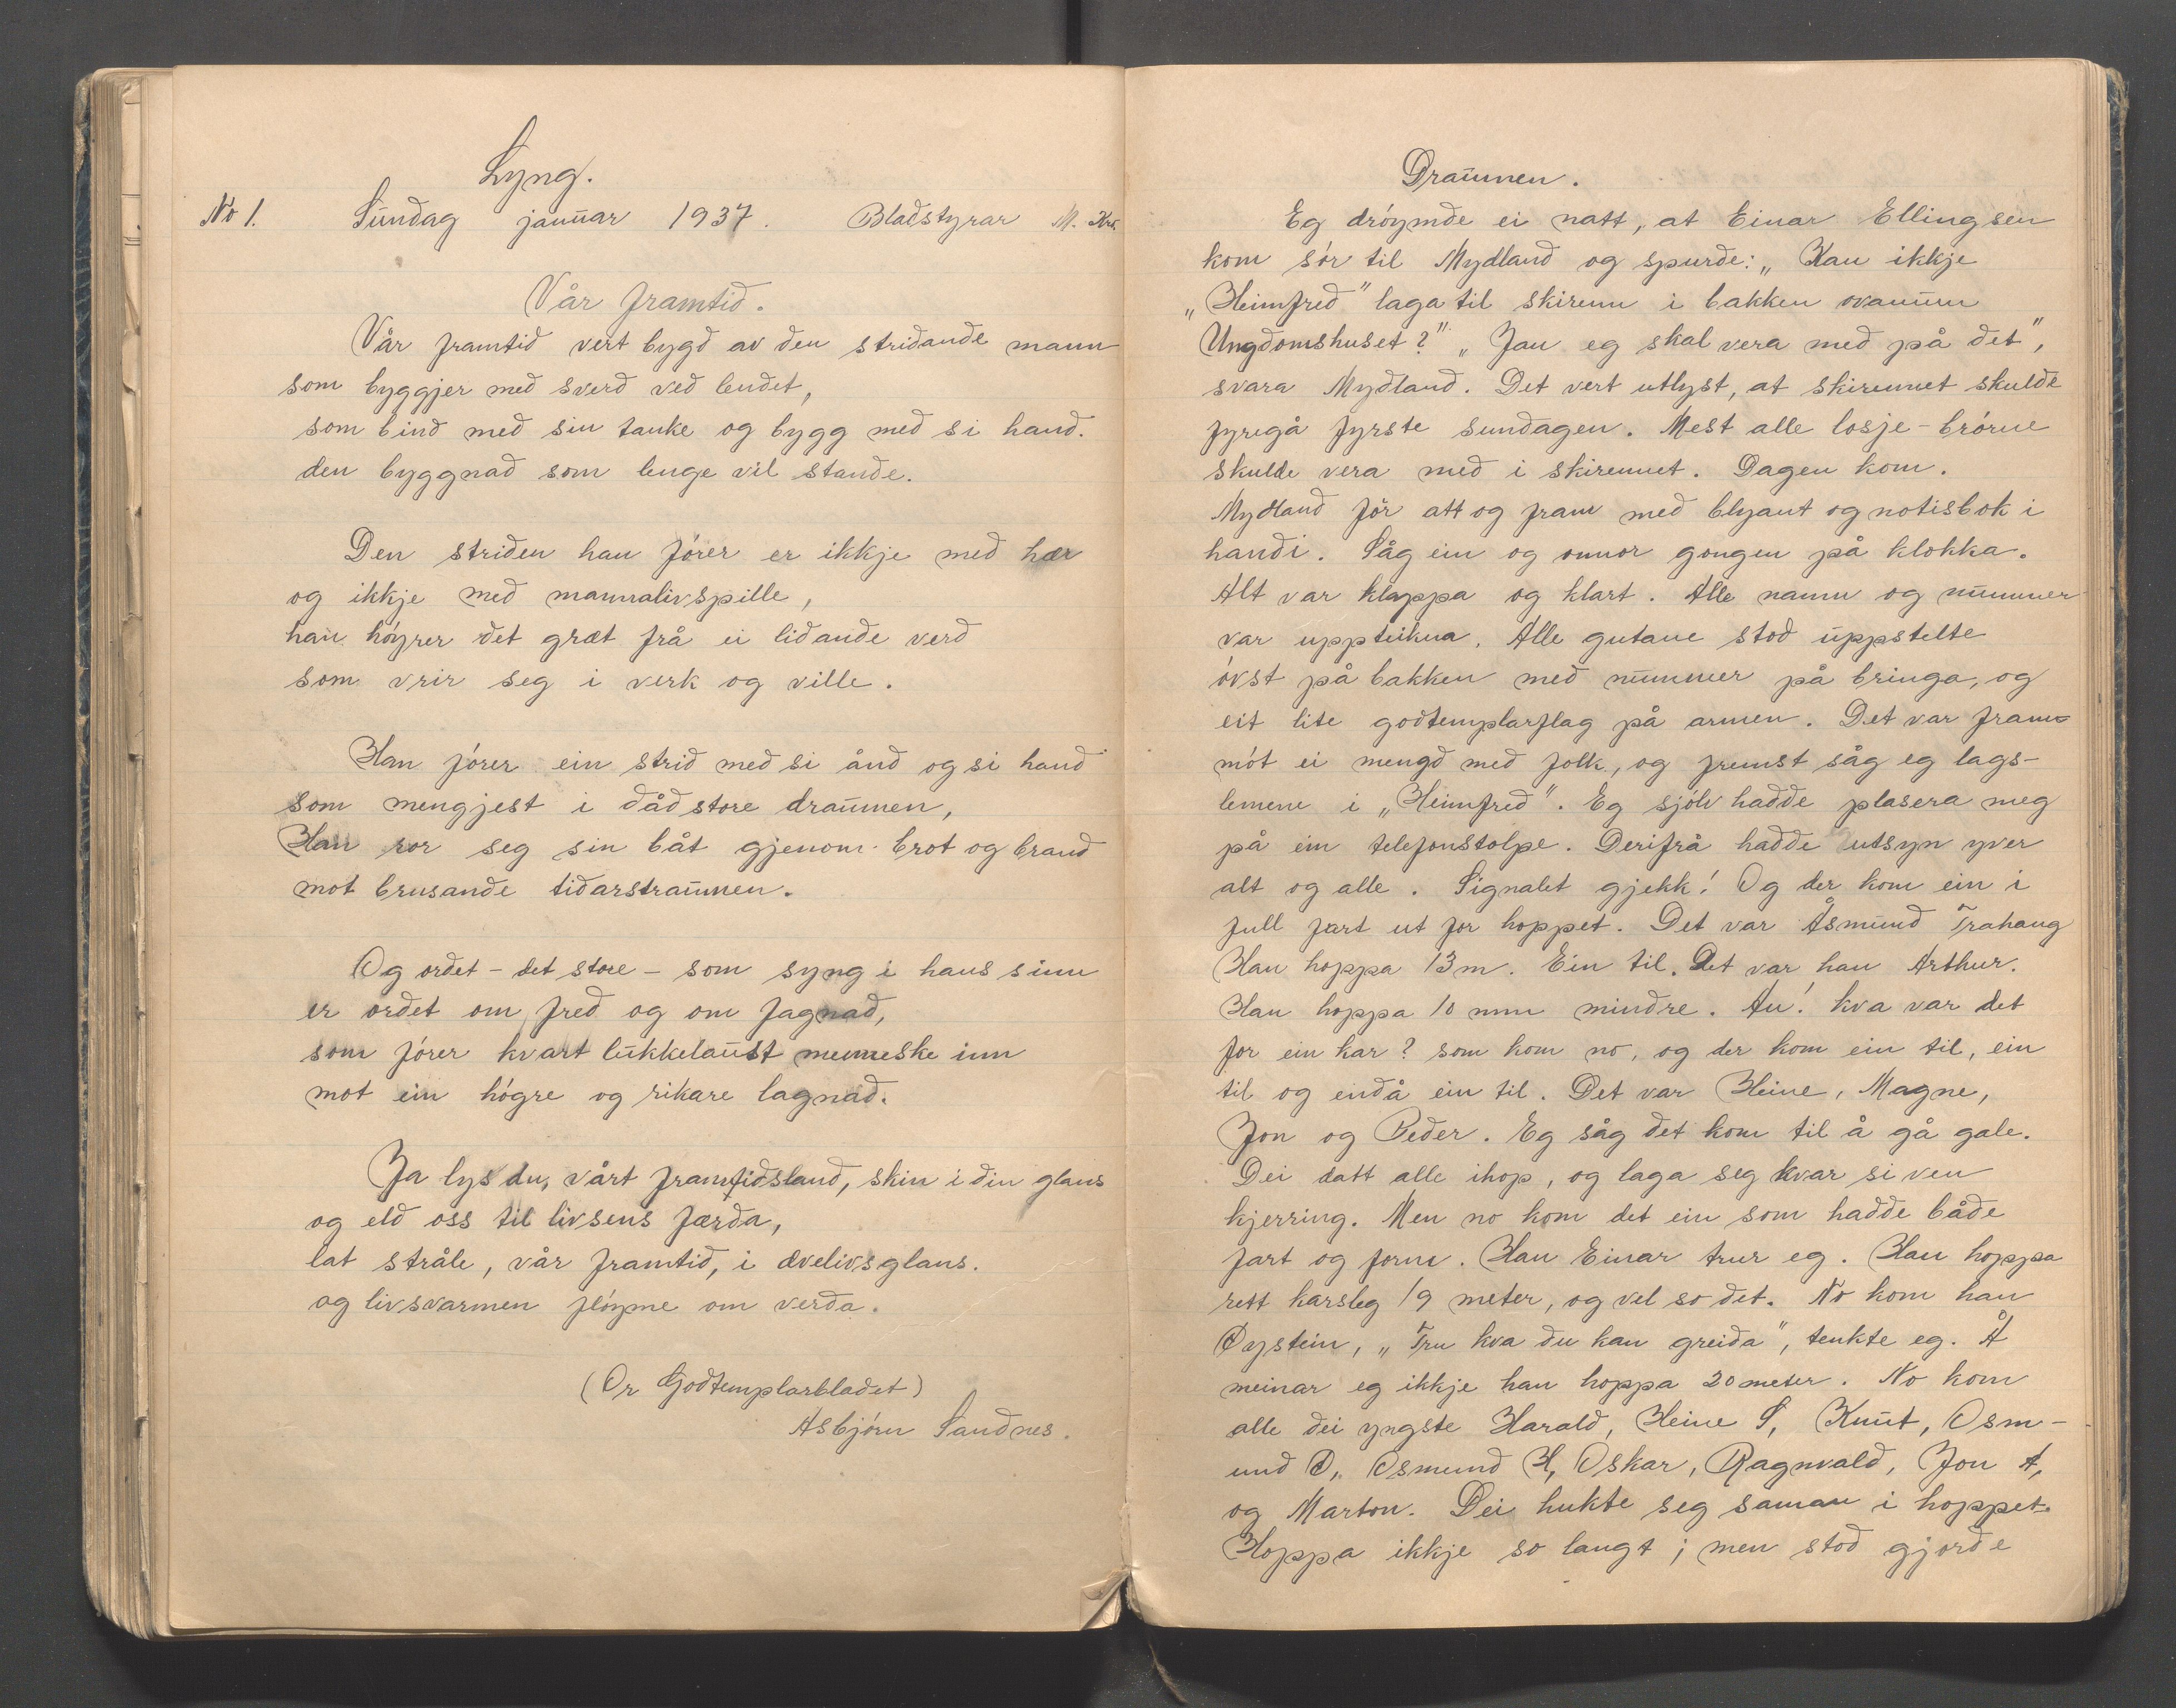 Lyng.
No 1. Sundag januar 1937. Bladstyrar M.
Vår framtid.
Vår framtid vert bygd av den stridande mann
som byggjer med sverd ved lendet,
som bind med sin tanke og bygg med si hand.
den byggnad som lenge vil stande.
Den striden han fører er ikkje med hær
og ikkje med mannalivspille,
han høyrer det græt frå ei lidande verd
som vrir seg i verk og ville.
Han fører ein strid med si ånd og si hand
som mengjest i dådstore draumen,
Han ror seg sin båt gjenom brot og brand
mot brusande tidarstraumen.
Og ordet - det store - som syng i hans sinn
er ordet om fred og om fagnad,
som fører kvart lukkelaust menneske inn
mot ein høgre og rikare lagnad.
Ja lys du, vårt framtidsland, skin i din glans
og eld oss til livsens færda,
lat stråle, vår framtid, i ævelivsglans.
og livsvarmen fløyme om verda.
(Or Godtemplarbladet)
Asbjørn Sandnes.
Draumen.
Eg drøymde ei natt, at Einar Ellingsen
kom sør til Mydland og spurde: „Kan ikkje
„Heimfred" laga til skirenn i bakken ovanum
Ungdomshuset?" „Jau eg skal vera med på det",
svara Mydland. Det vert utlyst, at skirennet skulde
fyregå fyrste sundagen. Mest alle losje-brørne
skulde vera med i skirennet. Dagen kom.
Mydland fór att og fram med blyant og notisbok i
handi. Såg ein og onnor gongen på klokka.
Alt var klappa og klart. Alle namn og nummer
var uppteikna. Alle gutane stod uppstelte
øvst på bakken med nummer på bringa, og
eit lite godtemplarflag på armen. Det var fram-
møt ei mengd med folk, og fremst såg eg lags-
lemene i „Heimfred". Eg sjølv hadde plasera meg
på ein telefonstolpe. Derifrå hadde utsyn yver
alt og alle. Signalet gjekk! Og der kom ein i
full fart ut for hoppet. Det var Åsmund Trahaug
Han hoppa 13 m. Ein til. Det var han Arthur.
Han hoppa 10 mm mindre. Au! kva var det
for ein kar? som kom no, og der kom ein til, ein
til og endå ein til. Det var Heine, Magne,
Jon og Peder. Eg såg det kom til å gå gale.
Dei datt alle ihop, og laga seg kvar si ven
kjerring. Men no kom det ein som hadde både
fart og form. Han Einar trur eg. Han hoppa
rett karsleg 19 meter, og vel so det. No kom han
Øystein, „Tru kva du kan greida", tenkte eg. Å
meinar eg ikkje han hoppa 20 meter. No kom
alle dei yngste Harald, Heine S, Knut, Osm-
und O,. Osmund H, Oskar, Ragnvald, Jon A,
og Marton. Dei hukte seg saman i hoppet.
Hoppa ikkje so langt; men stod gjorde